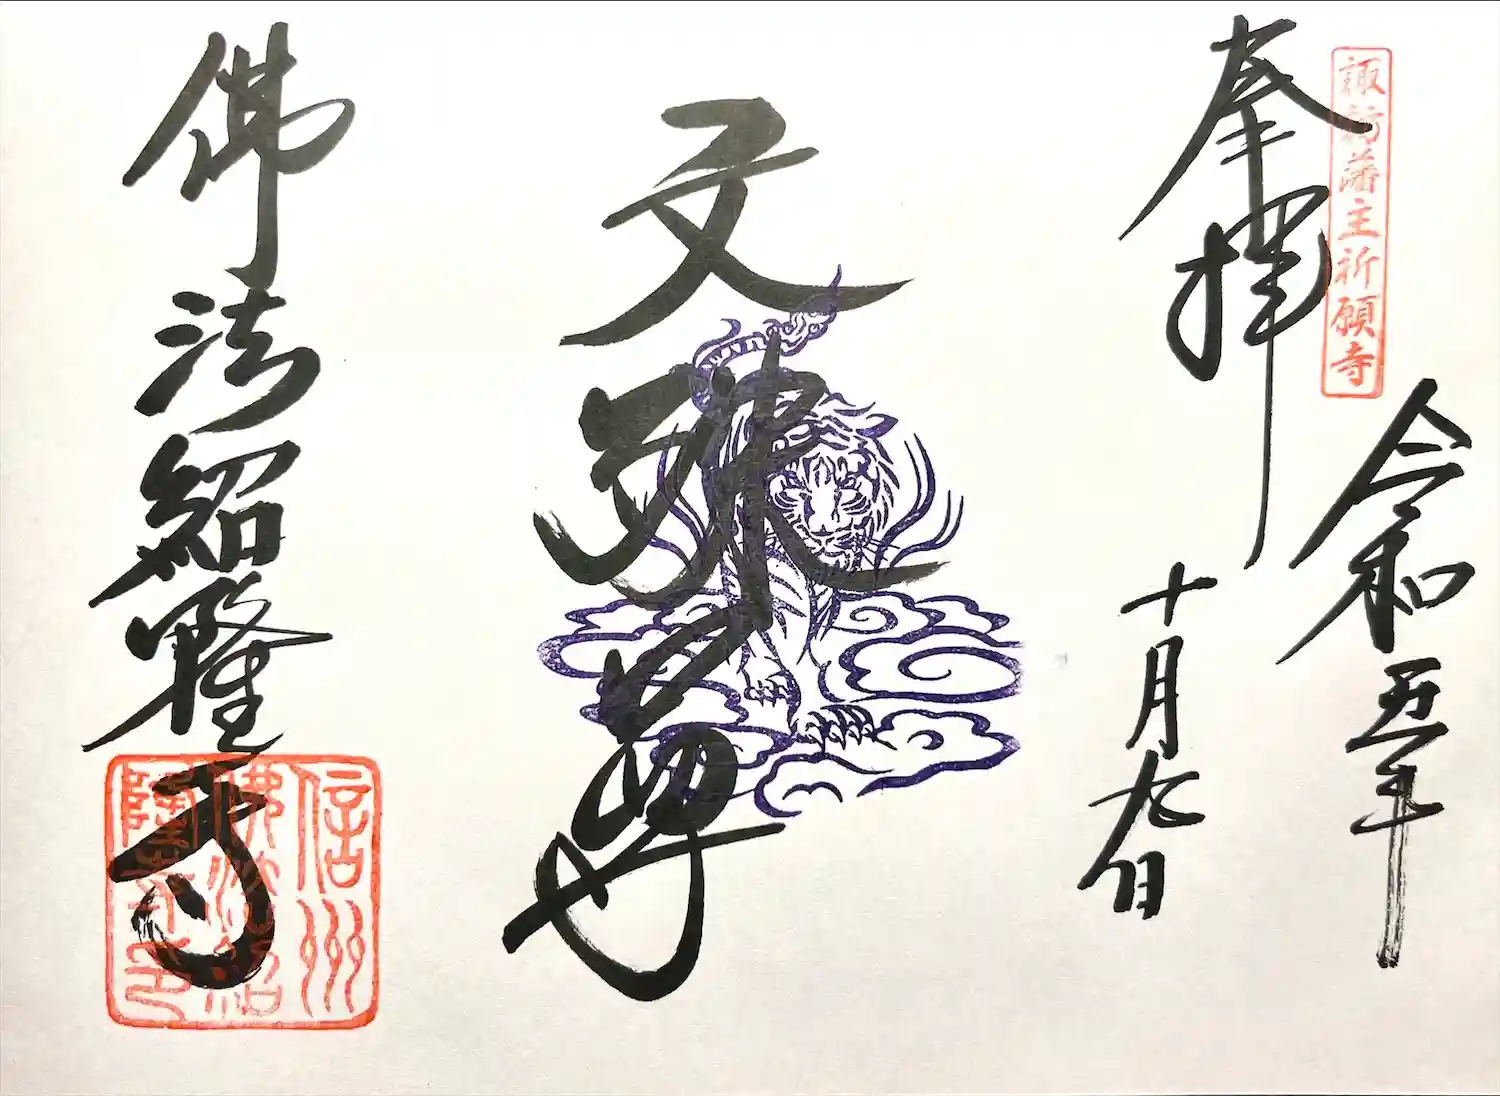 諏訪藩主祈願寺
奉拝
令和五年
十月九日
文殊尊
佛法紹隆寺
信州
佛法紹
隆寺印